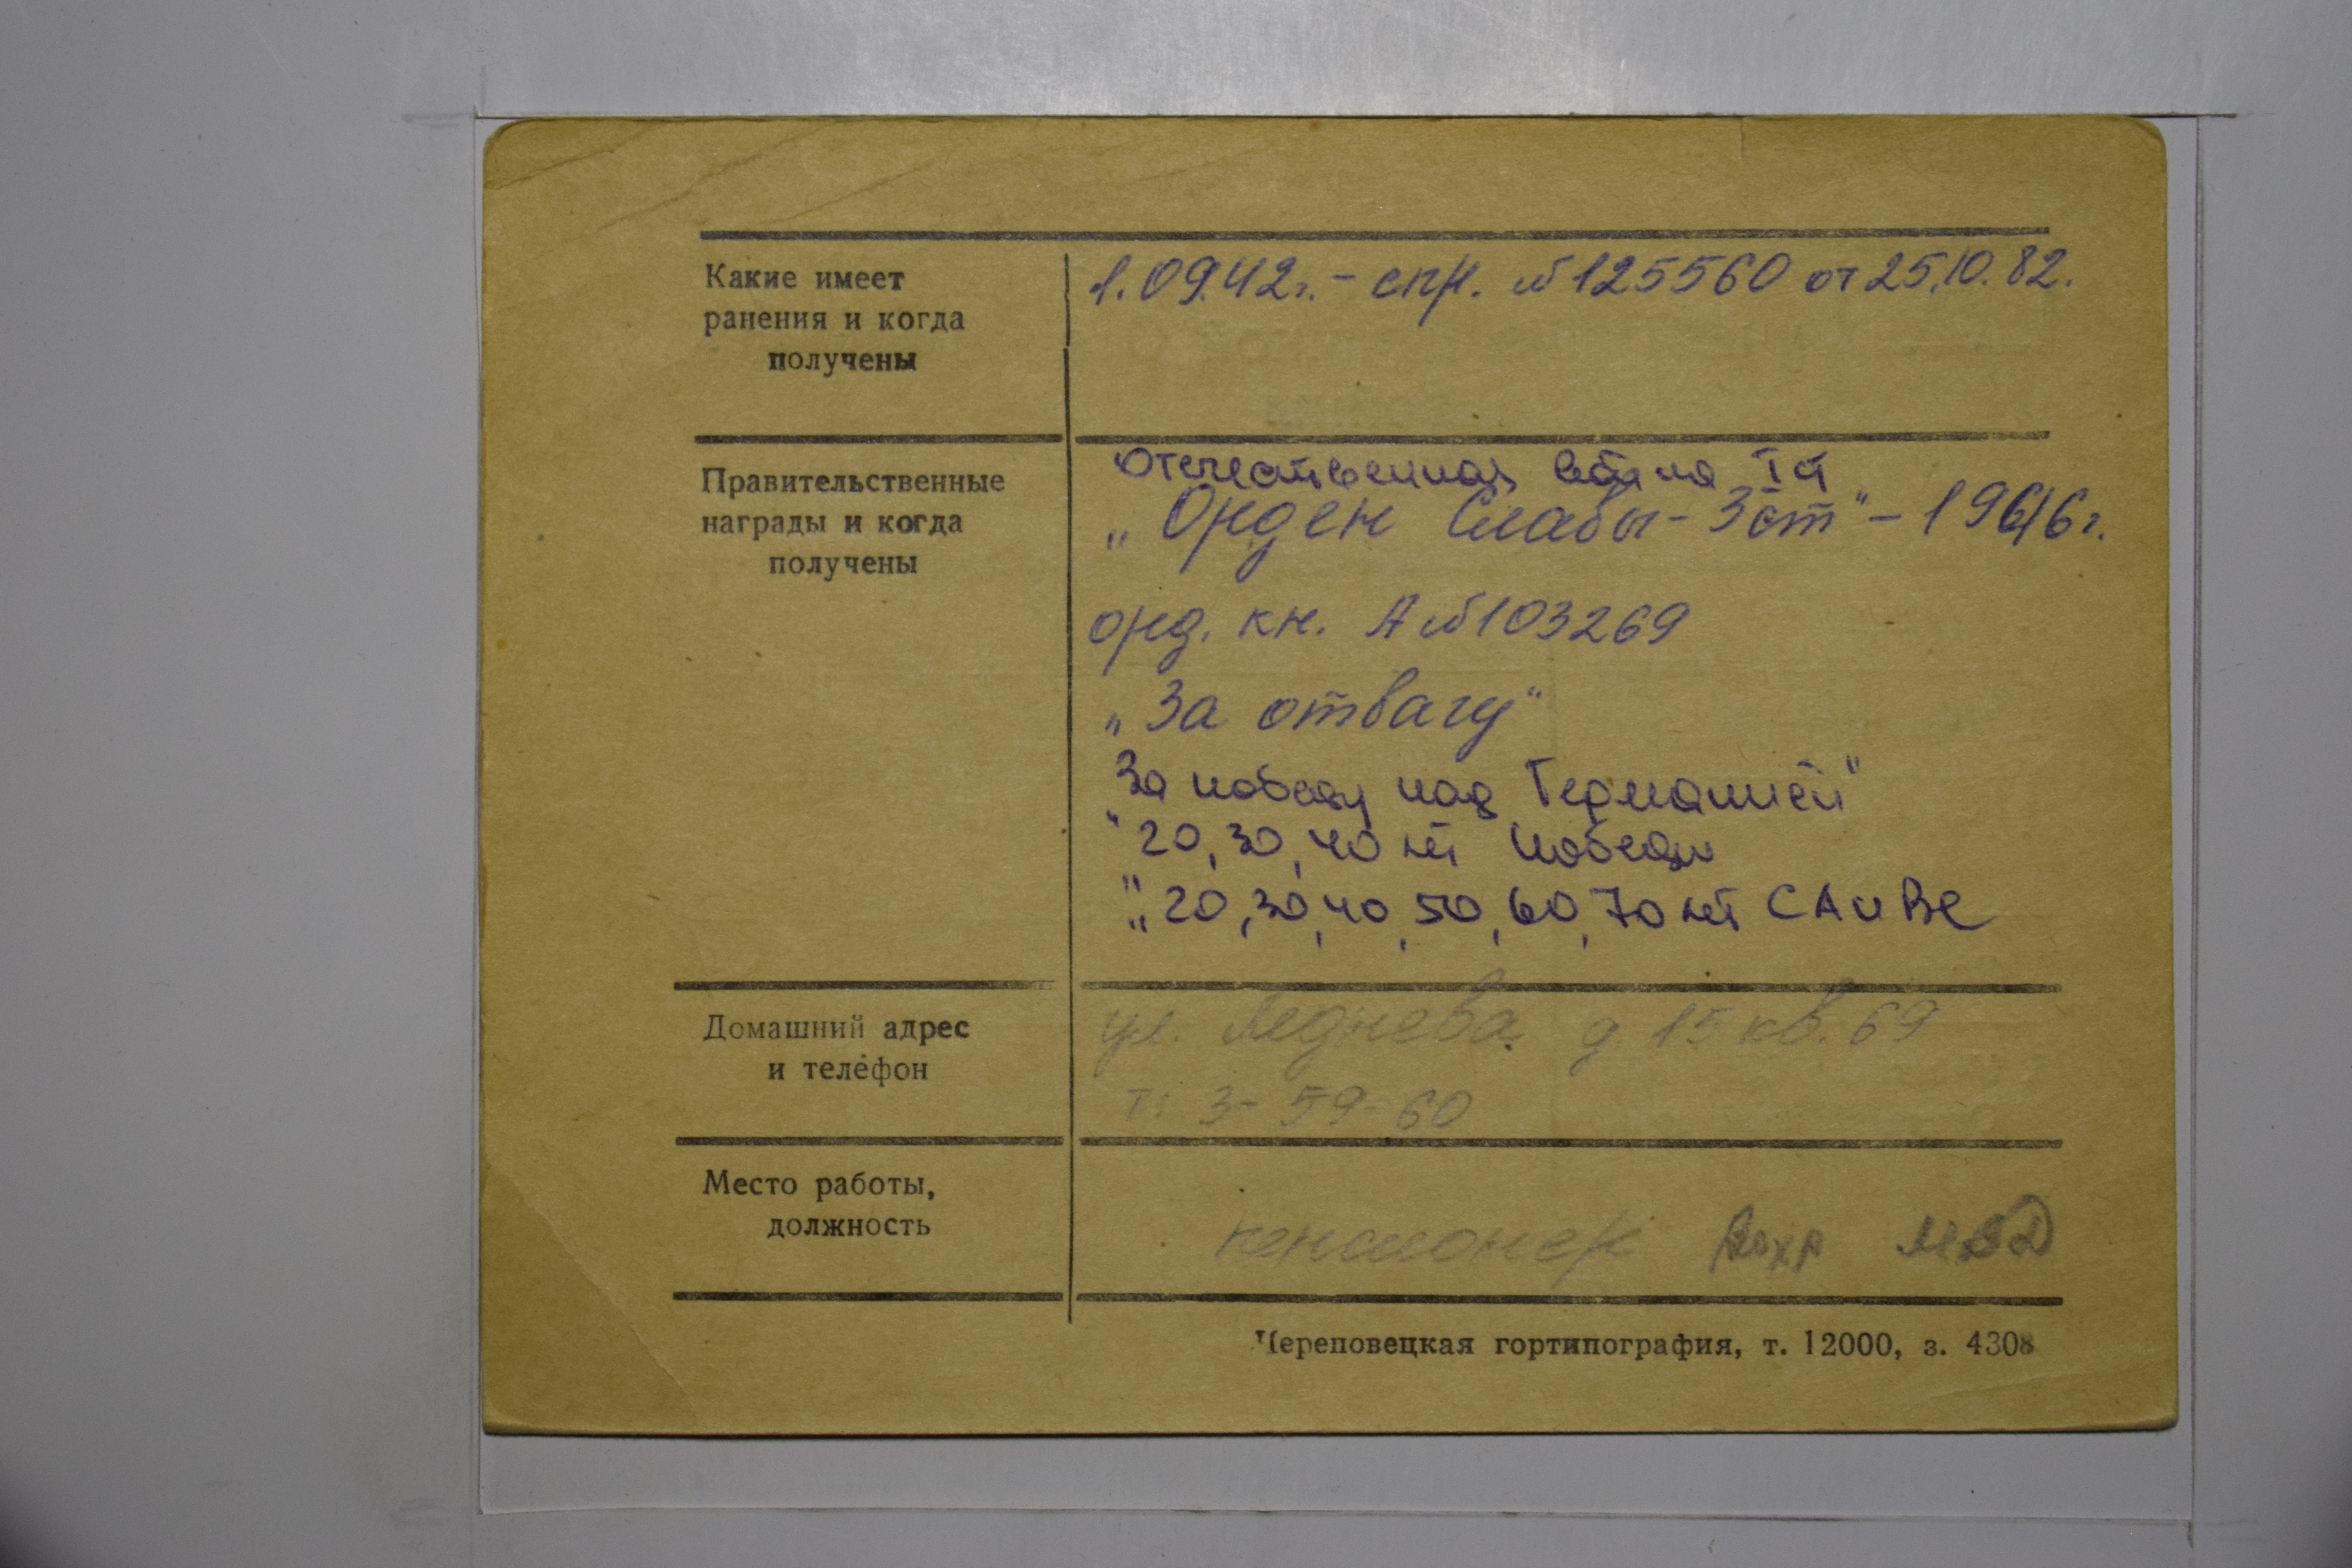 Какие имеет
ранения и когда
получены
1.09.42г. - спр. № 125560 от 25.10.82.
Правительственные
награды и когда
получены
Отечественная война I ст
„Орден Славы - 3 ст" -
орд. кн. А № 103269
„За отвагу"
За победу над Германией"
"20, 30, 40 лет Победы
„20, 30, 40, 50, 60, 70 лет СА и ВС
Домашний адрес
и телефон
ул. Леднева д 15 кв. 69
т: 3-59-60
Место работы,
должность
пенсионер Вохр МВД
Череповецкая гортипография, т. 12000, з. 4308